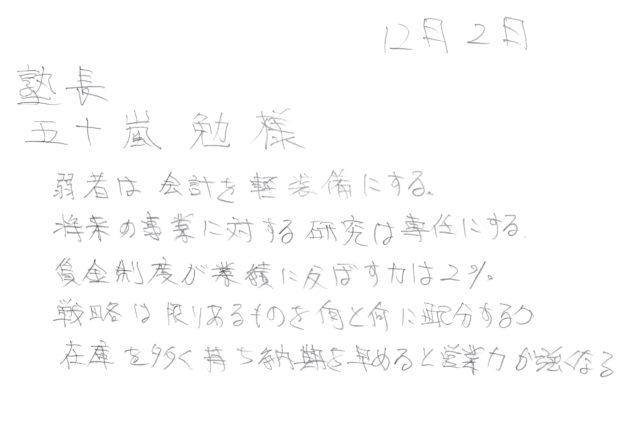 12月2日
塾長
五十嵐 勉 様
弱者は会計を軽装備にする。
将来の事業に対する研究は専任にする.
賃金制度が業績に及ぼす力は2%。
戦略は限りあるものを何と何に配分するか
在庫を多く持ち納期を早めると営業力が強くなる